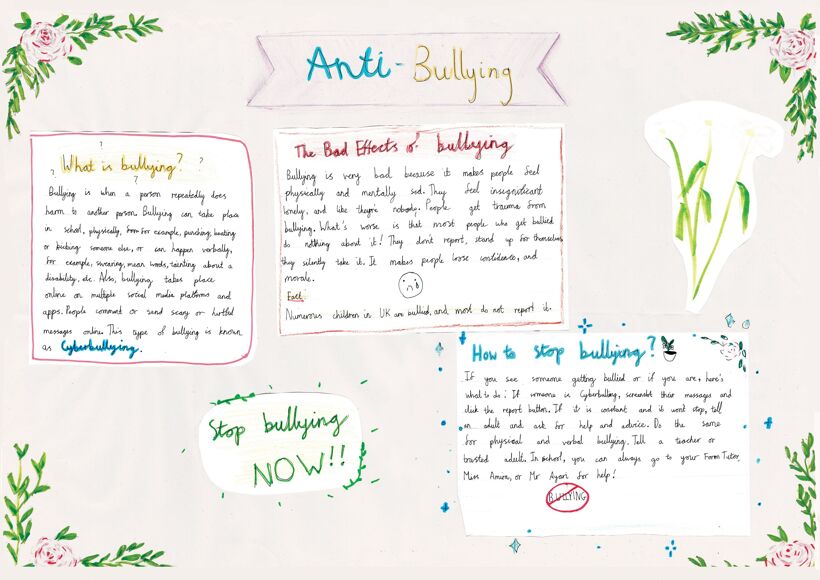 Anti-Bullying
What is bullying?
Bullying is when a person repeatedly does
harm to another person. Bullying can take place
in school, physically, from for example, punching, beating
or kicking someone else, or can happen verbally,
for example, swearing, mean words, taunting about a
disability, etc. Also, bullying takes place
online on multiple social media platforms and
apps. People comment or send scary or hurtful
messages online. This type of bullying is known
as Cyberbullying.
The Bad Effects of bullying
Bullying is very bad because it makes people feel
physically and mentally sad. They feel insignificant
lonely, and like they're nobody. People get trauma from
bullying. What's worse is that most people who get bullied
do nothing about it! They don't report, stand up for themselves,
they silently take it. It makes people lose confidence, and
morale.
Fact
Numerous children in UK are bullied, and most do not report it.
Stop bullying
NOW!!
How to stop bullying?
If you see someone getting bullied or if you are, here's
what to do: If someone is Cyberbulling, screenshot their messages and
click the report button. If it is constant and it wont stop, tell
an adult and ask for help and advice. Do the same
for physical and verbal bullying. Tell a teacher or
trusted adult. In school, you can always go to your Form Tutor,
Miss or Mr for help!
BULLYING